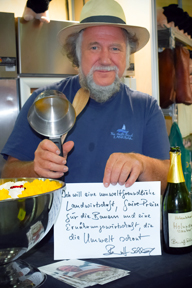 Ich will eine umweltfreundliche
Landwirtschaft, faire Preise
für die Bauern und eine
Ernährungswirtschaft, die
die Umwelt schont.